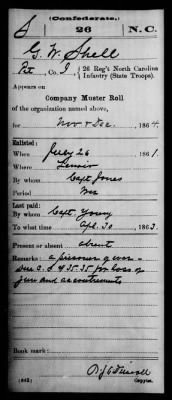 (Confederate.)
S 26 N.C.
G. W. Shell
Pvt, Co. I, 26 Reg't North Carolina
Infantry (State Troops).
Appears on
Company Muster Roll
of the organization named above,
for Nov & Dec, 1864.
Enlisted:
When July 26, 1861.
Where Lenoir
By whom Capt Jones
Period War
Last paid:
By whom Capt Young
To what time Apl. 30, 1863.
Present or absent absent
Remarks: a prisoner of war -
due C. S. $35.35 for loss of
gun and accoutrements
Book mark:
(642)
Copyist.